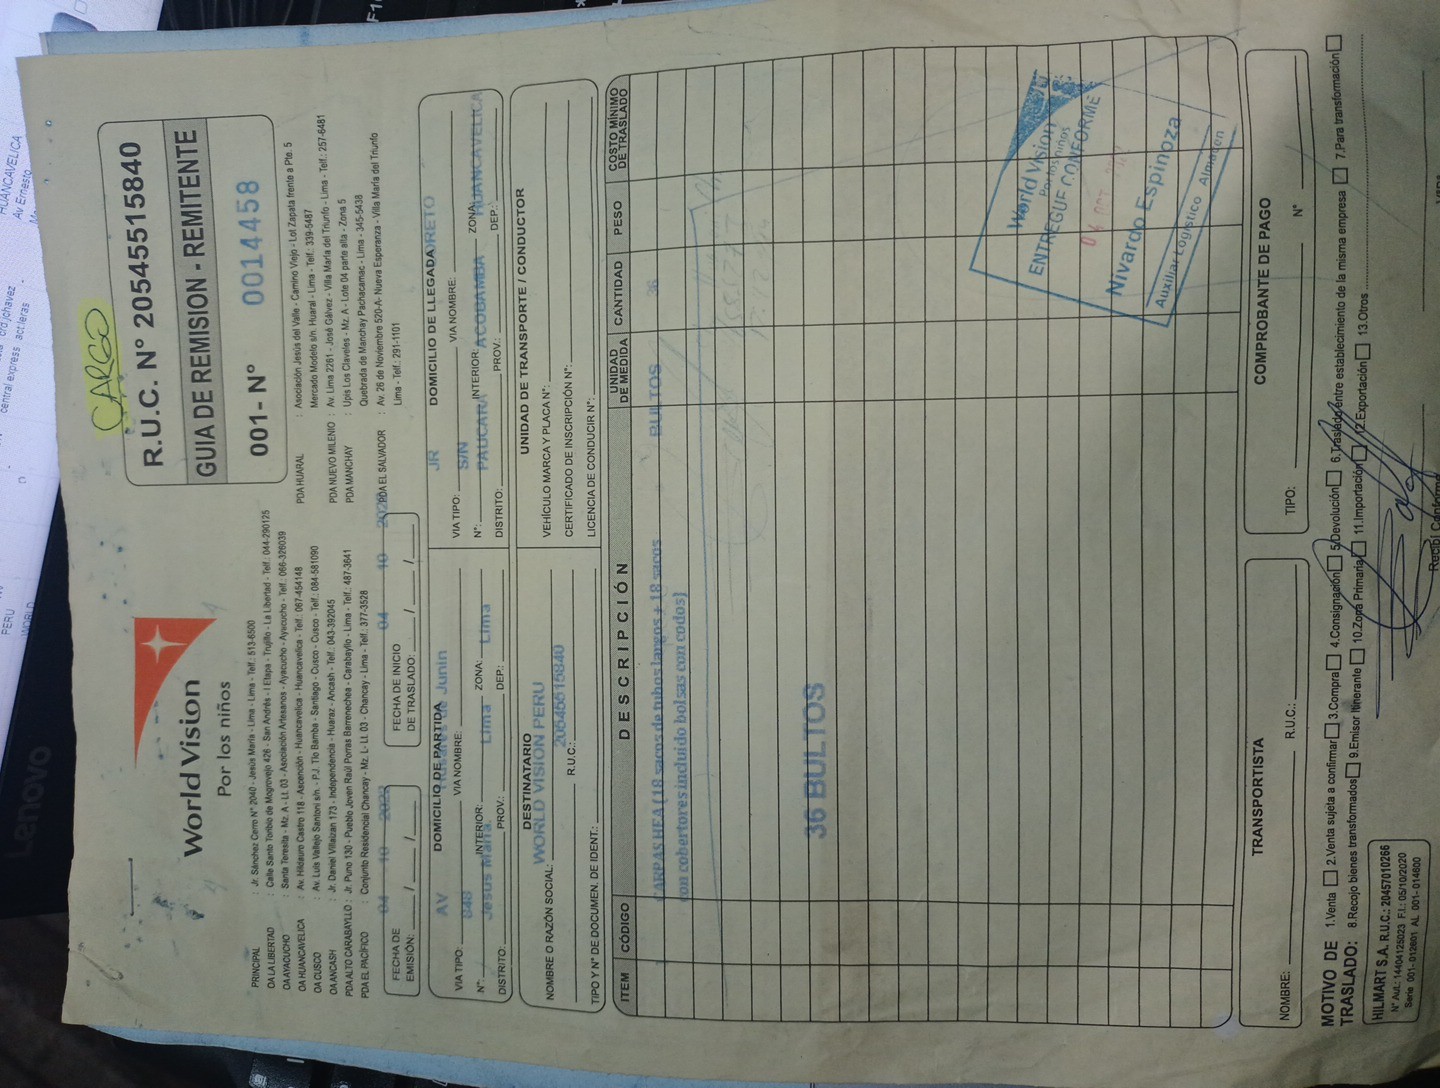 CARGO
World Vision
Por los niños
R.U.C. N° 20545515840
GUIA DE REMISION - REMITENTE
001- N° 0014458
PRINCIPAL : Jr. Sánchez Cerro N° 2040 - Jesús María - Lima - Telf.: 513-6500
OA LA LIBERTAD : Calle Santo Toribio de Mogrovejo 426 - San Andrés - I Etapa - Trujillo - La Libertad - Telf.: 044-290125
OA AYACUCHO : Santa Teresita - Mz. A - Lt. 03 - Asociación Artesanos - Ayacucho - Ayacucho - Telf.: 066-326039
OA HUANCAVELICA : Av. Hildauro Castro 118 - Ascención - Huancavelica - Huancavelica - Telf.: 067-454148
OA CUSCO : Av. Luis Vallejo Santoni s/n. - P.J. Tío Bamba - Santiago - Cusco - Cusco - Telf.: 084-581090
OA ANCASH : Jr. Daniel Villaizan 173 - Independencia - Huaraz - Ancash - Telf.: 043-392045
PDA ALTO CARABAYLLO : Jr. Puno 130 - Pueblo Joven Raúl Porras Barrenechea - Carabayllo - Lima - Telf.: 487-3641
PDA EL PACÍFICO : Conjunto Residencial Chancay - Mz. L- Lt. 03 - Chancay - Lima - Telf.: 377-3528
PDA HUARAL : Asociación Jesús del Valle - Camino Viejo - Lol Zapata frente a Pte. 5
Mercado Modelo s/n. Huaral - Lima - Telf.: 339-5487
PDA NUEVO MILENIO : Av. Lima 2261 - José Gálvez - Villa María del Triunfo - Lima - Telf.: 257-6481
PDA MANCHAY : Upis Los Claveles - Mz. A - Lote 04 parte alta - Zona 5
Quebrada de Manchay Pachacamac - Lima - 345-5438
PDA EL SALVADOR : Av. 26 de Noviembre 520-A- Nueva Esperanza - Villa María del Triunfo
Lima - Telf.: 291-1101
FECHA DE EMISIÓN: 04 / 10 / 2022
FECHA DE INICIO DE TRASLADO: 04 / 10 /
DOMICILIO DE PARTIDA
VIA TIPO: AV VIA NOMBRE: Junin
N°: 848 INTERIOR: ZONA:
DISTRITO: Jesus Maria PROV.: Lima DEP.: Lima
DOMICILIO DE LLEGADA
VIA TIPO: JR VIA NOMBRE:
N°: S/N INTERIOR: ZONA:
DISTRITO: PAUCARA PROV.: ACOBAMBA DEP.: HUANCAVELICA
DESTINATARIO
NOMBRE O RAZÓN SOCIAL: WORLD VISION PERU
R.U.C.: 20545515840
TIPO Y N° DE DOCUMEN. DE IDENT.:
UNIDAD DE TRANSPORTE / CONDUCTOR
VEHÍCULO MARCA Y PLACA N°:
CERTIFICADO DE INSCRIPCIÓN N°:
LICENCIA DE CONDUCIR N°:
ITEM CÓDIGO DESCRIPCIÓN UNIDAD DE MEDIDA CANTIDAD PESO COSTO MÍNIMO DE TRASLADO
CARPAS HEA (18 sacos de tubos largos + 18 sacos BULTOS 36
con cobertores incluido bolsas con codos)
36 BULTOS
World Vision
Por los niños
ENTREGUE CONFORME
04 OCT
Nivardo Espinoza
Auxiliar Logístico Almacen
TRANSPORTISTA
NOMBRE: R.U.C.:
COMPROBANTE DE PAGO
TIPO: N°
MOTIVO DE TRASLADO: 1.Venta 2.Venta sujeta a confirmar 3.Compra 4.Consignación 5.Devolución 6.Traslado entre establecimiento de la misma empresa 7.Para transformación
8.Recojo bienes transformados 9.Emisor Itinerante 10.Zona Primaria 11.Importación 12.Exportación 13.Otros
HILMART S.A. R.U.C.: 20457010266
N° Aut.: 14404125023 F.I.: 05/10/2020
Serie 001- 012601 AL 001- 014800
Recibí Conforme
Lenovo